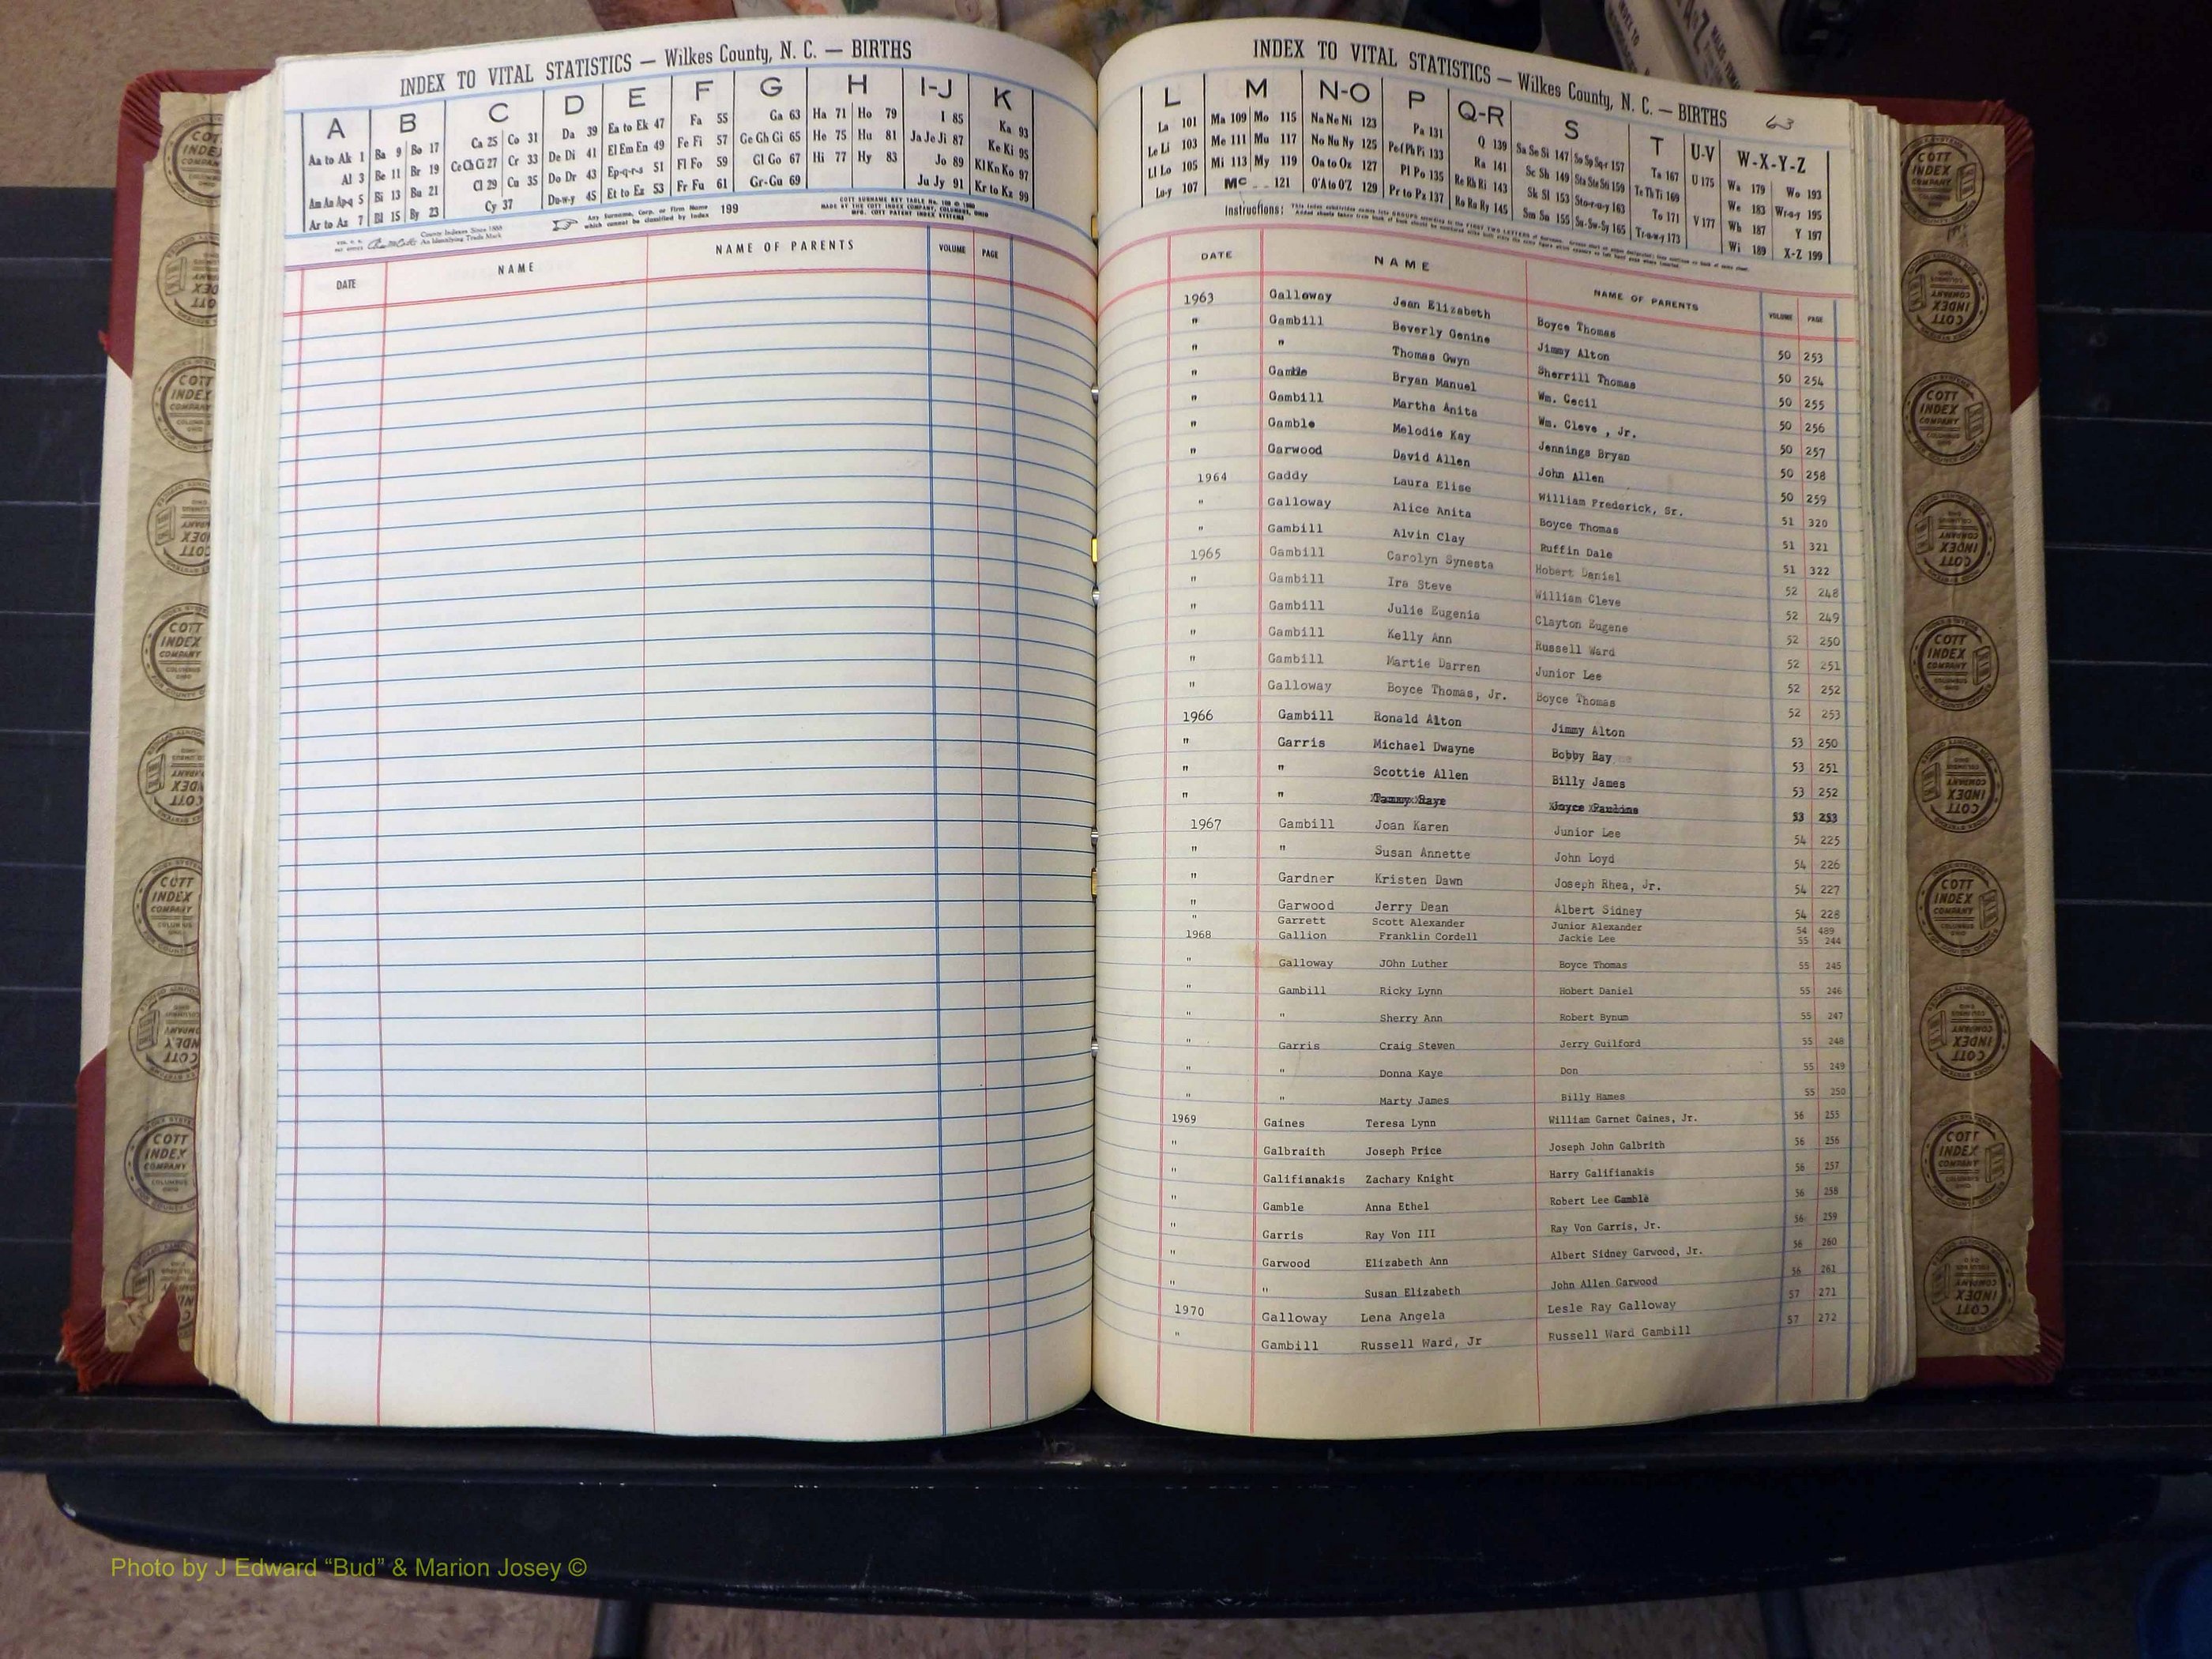 INDEX TO VITAL STATISTICS — Wilkes County, N. C. — BIRTHS
A B C D E F G H I-J K
Aa to Ak 1 Ba 9 Bo 17 Ca 25 Co 31 Da 39 Ea to Ek 47 Fa 55 Ga 63 Ha 71 Ho 79 I 85 Ka 93
Al 3 Be 11 Br 19 Ce Ch Ci 27 Cr 33 De Di 41 El Em En 49 Fe Fi 57 Ge Gh Gi 65 He 75 Hu 81 Ja Je Ji 87 Ke Ki 95
Am An Ap-q 5 Bi 13 Bu 21 Cl 29 Cu 35 Do Dr 43 Ep-q-r-s 51 Fl Fo 59 Gl Go 67 Hi 77 Hy 83 Jo 89 Kl Kn Ko 97
Ar to Az 7 Bl 15 By 23 Cy 37 Du-w-y 45 Et to Ez 53 Fr Fu 61 Gr-Gu 69 Ju Jy 91 Kr to Kz 99
County Indexes Since 1888
An Identifying Trade Mark
Any Surname, Corp. or Firm Name which cannot be classified by Index 199
DATE NAME NAME OF PARENTS VOLUME PAGE
INDEX TO VITAL STATISTICS — Wilkes County, N. C. — BIRTHS 63
L M N-O P Q-R S T U-V W-X-Y-Z
La 101 Ma 109 Mo 115 Na Ne Ni 123 Pa 131 Q 139 Sa Se Si 147 So Sp Sq-r 157 Ta 167 U 175 Wa 179 Wo 193
Le Li 103 Me 111 Mu 117 No Nu Ny 125 Pe-f Ph Pi 133 Ra 141 Sc Sh 149 Sta Ste Sti 159 Te Th Ti 169 V 177 We 183 Wr-u-y 195
Ll Lo 105 Mi 113 My 119 Oa to Oz 127 Pl Po 135 Re Rh Ri 143 Sk Sl 153 Sto-r-u-y 163 To 171 Wh 187 Y 197
Lu-y 107 Mc 121 O'A to O'Z 129 Pr to Pz 137 Ro Ru Ry 145 Sm Sn 155 Su-Sw-Sy 165 Tr-u-w-y 173 Wi 189 X-Z 199
Instructions:
DATE NAME NAME OF PARENTS VOLUME PAGE
1963 Galloway Jean Elizabeth Boyce Thomas 50 253
" Gambill Beverly Genine Jimmy Alton 50 254
" " Thomas Gwyn Sherrill Thomas 50 255
" Gamble Bryan Manuel Wm. Cecil 50 256
" Gambill Martha Anita Wm. Cleve , Jr. 50 257
" Gamble Melodie Kay Jennings Bryan 50 258
" Garwood David Allen John Allen 50 259
1964 Gaddy Laura Elise William Frederick, Sr. 51 320
" Galloway Alice Anita Boyce Thomas 51 321
" Gambill Alvin Clay Ruffin Dale 51 322
1965 Gambill Carolyn Synesta Hobert Daniel 52 248
" Gambill Ira Steve William Cleve 52 249
" Gambill Julie Eugenia Clayton Eugene 52 250
" Gambill Kelly Ann Russell Ward 52 251
" Gambill Martie Darren Junior Lee 52 252
" Galloway Boyce Thomas, Jr. Boyce Thomas 52 253
1966 Gambill Ronald Alton Jimmy Alton 53 250
" Garris Michael Dwayne Bobby Ray 53 251
" " Scottie Allen Billy James 53 252
" " 53 253
1967 Gambill Joan Karen Junior Lee 54 225
" " Susan Annette John Loyd 54 226
" Gardner Kristen Dawn Joseph Rhea, Jr. 54 227
" Garwood Jerry Dean Albert Sidney 54 228
" Garrett Scott Alexander Junior Alexander 54 489
1968 Gallion Franklin Cordell Jackie Lee 55 244
" Galloway JOhn Luther Boyce Thomas 55 245
" Gambill Ricky Lynn Hobert Daniel 55 246
" " Sherry Ann Robert Bynum 55 247
" Garris Craig Steven Jerry Guilford 55 248
" " Donna Kaye Don 55 249
" " Marty James Billy Hames 55 250
1969 Gaines Teresa Lynn William Garnet Gaines, Jr. 56 255
" Galbraith Joseph Price Joseph John Galbrith 56 256
" Galifianakis Zachary Knight Harry Galifianakis 56 257
" Gamble Anna Ethel Robert Lee Gamble 56 258
" Garris Ray Von III Ray Von Garris, Jr. 56 259
" Garwood Elizabeth Ann Albert Sidney Garwood, Jr. 56 260
" " Susan Elizabeth John Allen Garwood 56 261
1970 Galloway Lena Angela Lesle Ray Galloway 57 271
" Gambill Russell Ward, Jr Russell Ward Gambill 57 272
Photo by J Edward “Bud” & Marion Josey ©